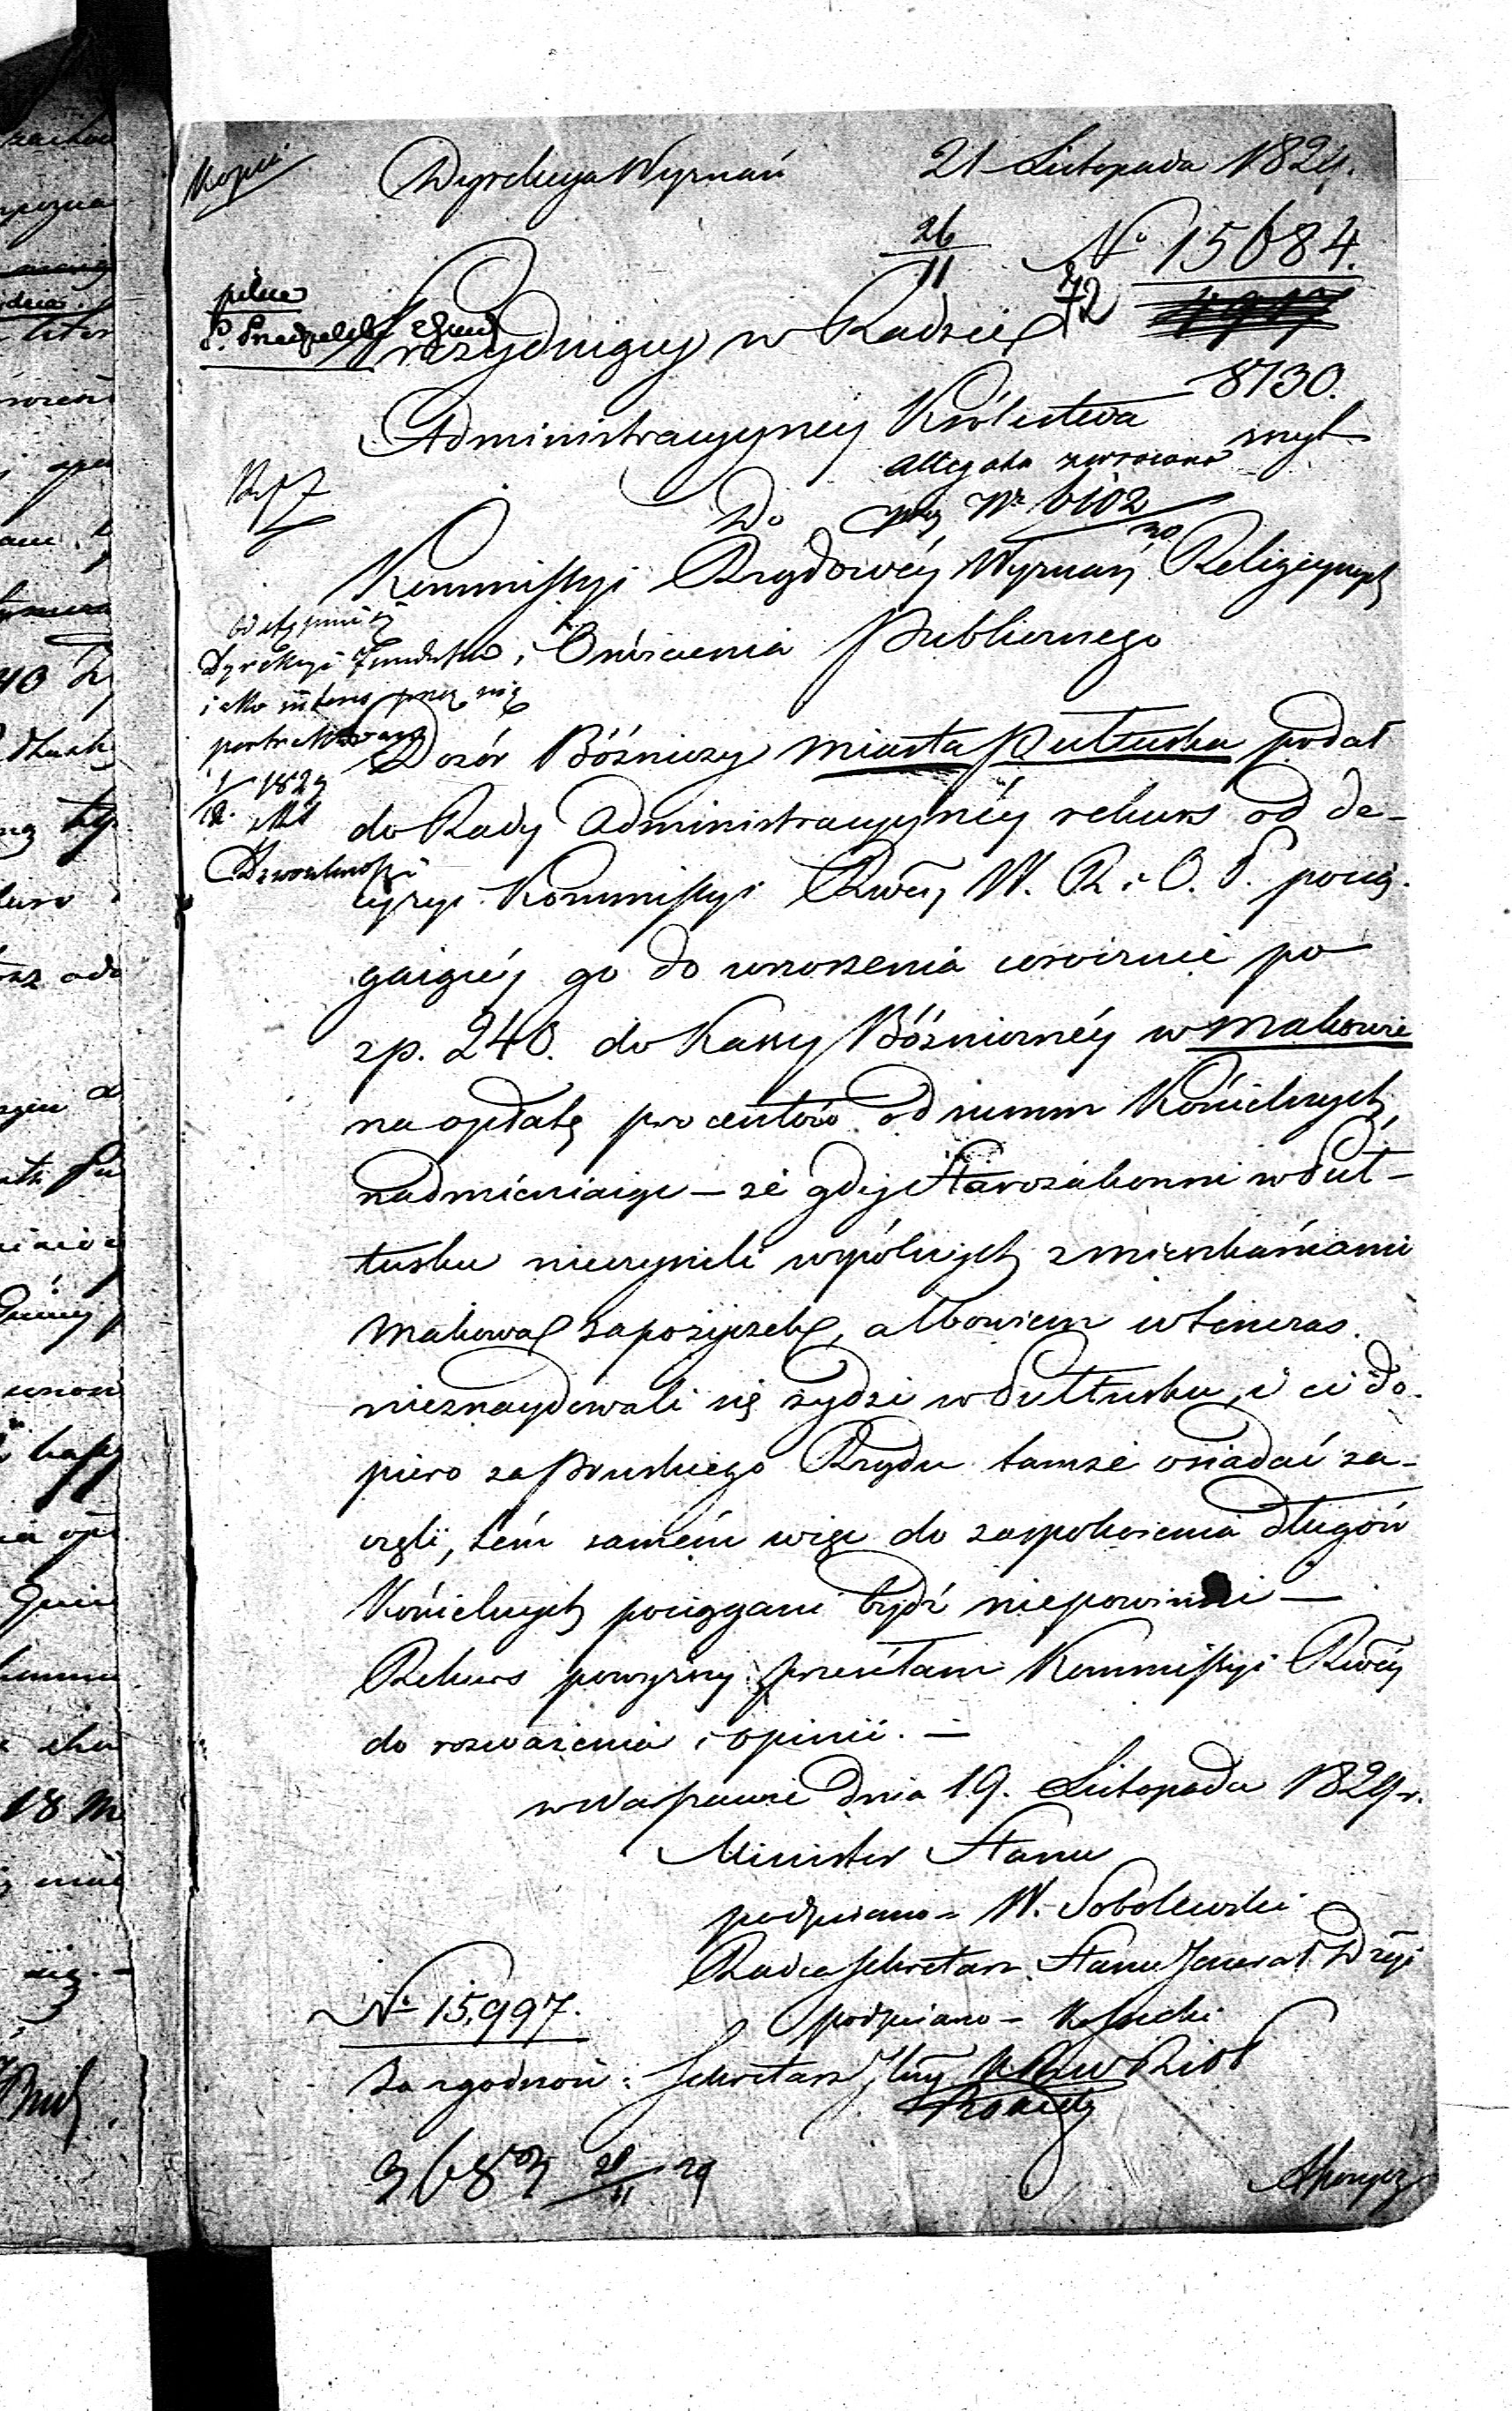 Kopia
Dyrekcya Wyznań 21 Listopada 1829.
26/11 № 15684.
pilne
Prezyduiący w Radzie 72
8130.
Administracyyney Królestwa
allegata zwrocono
Do przy Nr 6102
Kommissyi Rządowéy Wyznań Religiynych
odstąpić
Dyrekcyi Funduszu i Oświecenia Publicznego
iako przez nią
Dozór Bóżniczy miasta Pułtuska podał
1829
do Rady Administracyynéy rekurs od de-
cyzyi Kommissyi Rwéy W. R. i O. P. pocią-
gaiącéy go do wnoszenia corocznie po
zp. 240. do Kassy Bóżnicznéy w Makowie
na opłatę procentów od summ Kościelnych,
nadmieniaiąc – że gdy Starozakonni w Puł-
tusku nieczynili wspólnych z mieszkańcami
Makowa zapożyczek, albowiem wtenczas
nieznaydowali się żydzi w Pułtusku, i ci do-
piero za Pruskiego Rządu tamże osiadać za-
częli, tém samém więc do zaspokoienia długów
Kościelnych pociągani bydź niepowinni –
Rekurs powyższy przesyłam Kommissyi Rwéy
do rozważenia i opinii. –
w Warszawie dnia 19. Listopada 1829 r.
Minister Stanu
podpisano – W. Sobolewski
Radca Sekretarz Stanu Jenerał Dyzyi
№ 15,997. podpisano – Kossecki
Za zgodność: Sekretarz Jlny